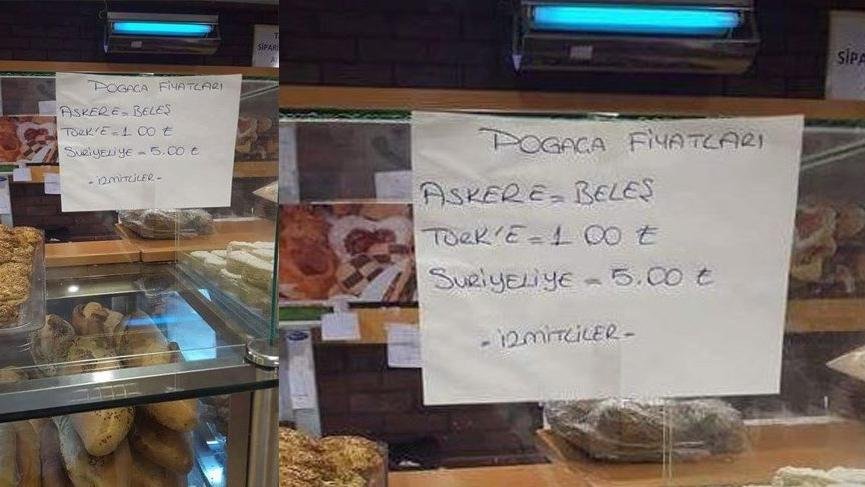 TA
SİPARİ
A
POGACA FİYATLARI
ASKERE = BELEŞ
TÜRK'E = 1 00 ₺
SURİYELİYE = 5.00 ₺
- İZMİTLİLER -
SİPA
POGACA FİYATLARI
ASKERE = BELEŞ
TÜRK'E = 1 00 ₺
SURİYELİYE = 5.00 ₺
- İZMİTLİLER -